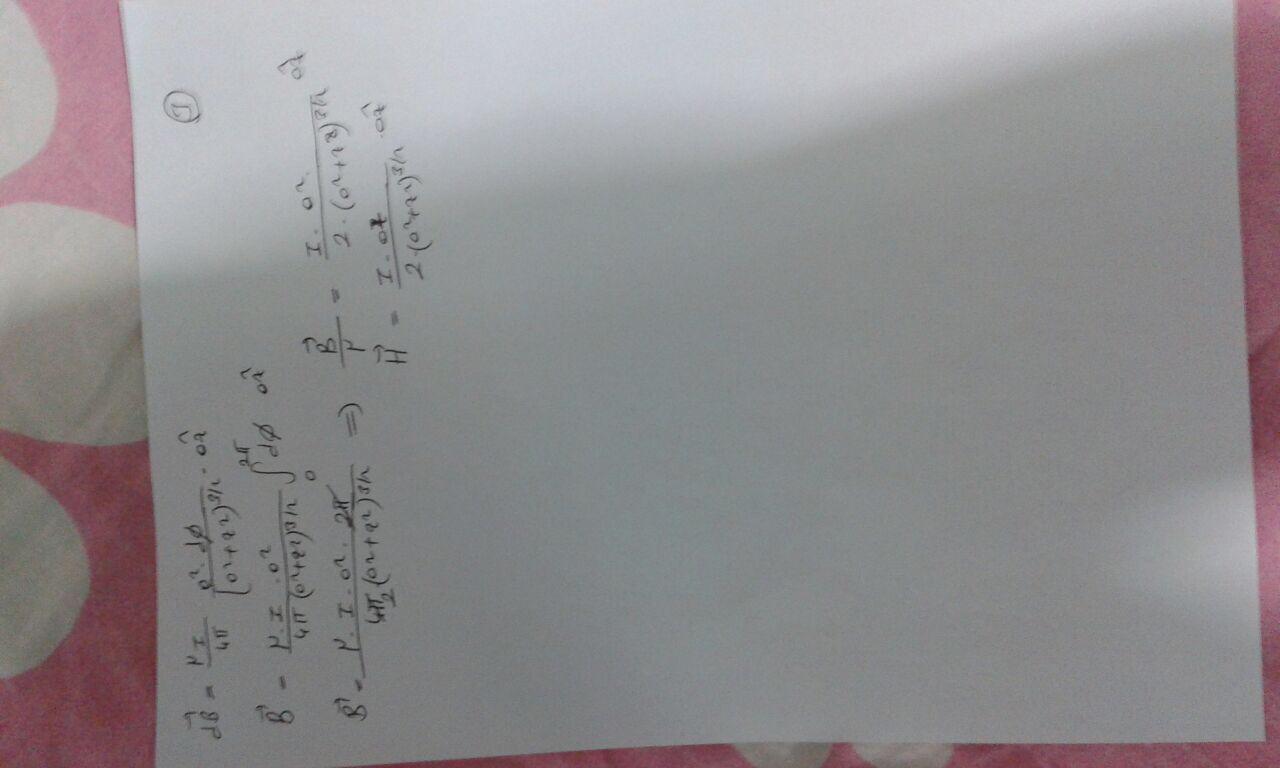 ①
dB⃗ = μI/4π · a²·dφ/[a²+z²)^3/2 · az^
B⃗ = μ·I·a²/4π(a²+z²)^3/2 ∫₀^2π dφ az^
B⃗ = μ·I·a²·2π/4π₂(a²+z²)^3/2 ⇒ B⃗/μ = I·a²/2·(a²+z²)^3/2 az^
H⃗ = I·a²/2·(a²+z²)^3/2 ·az^